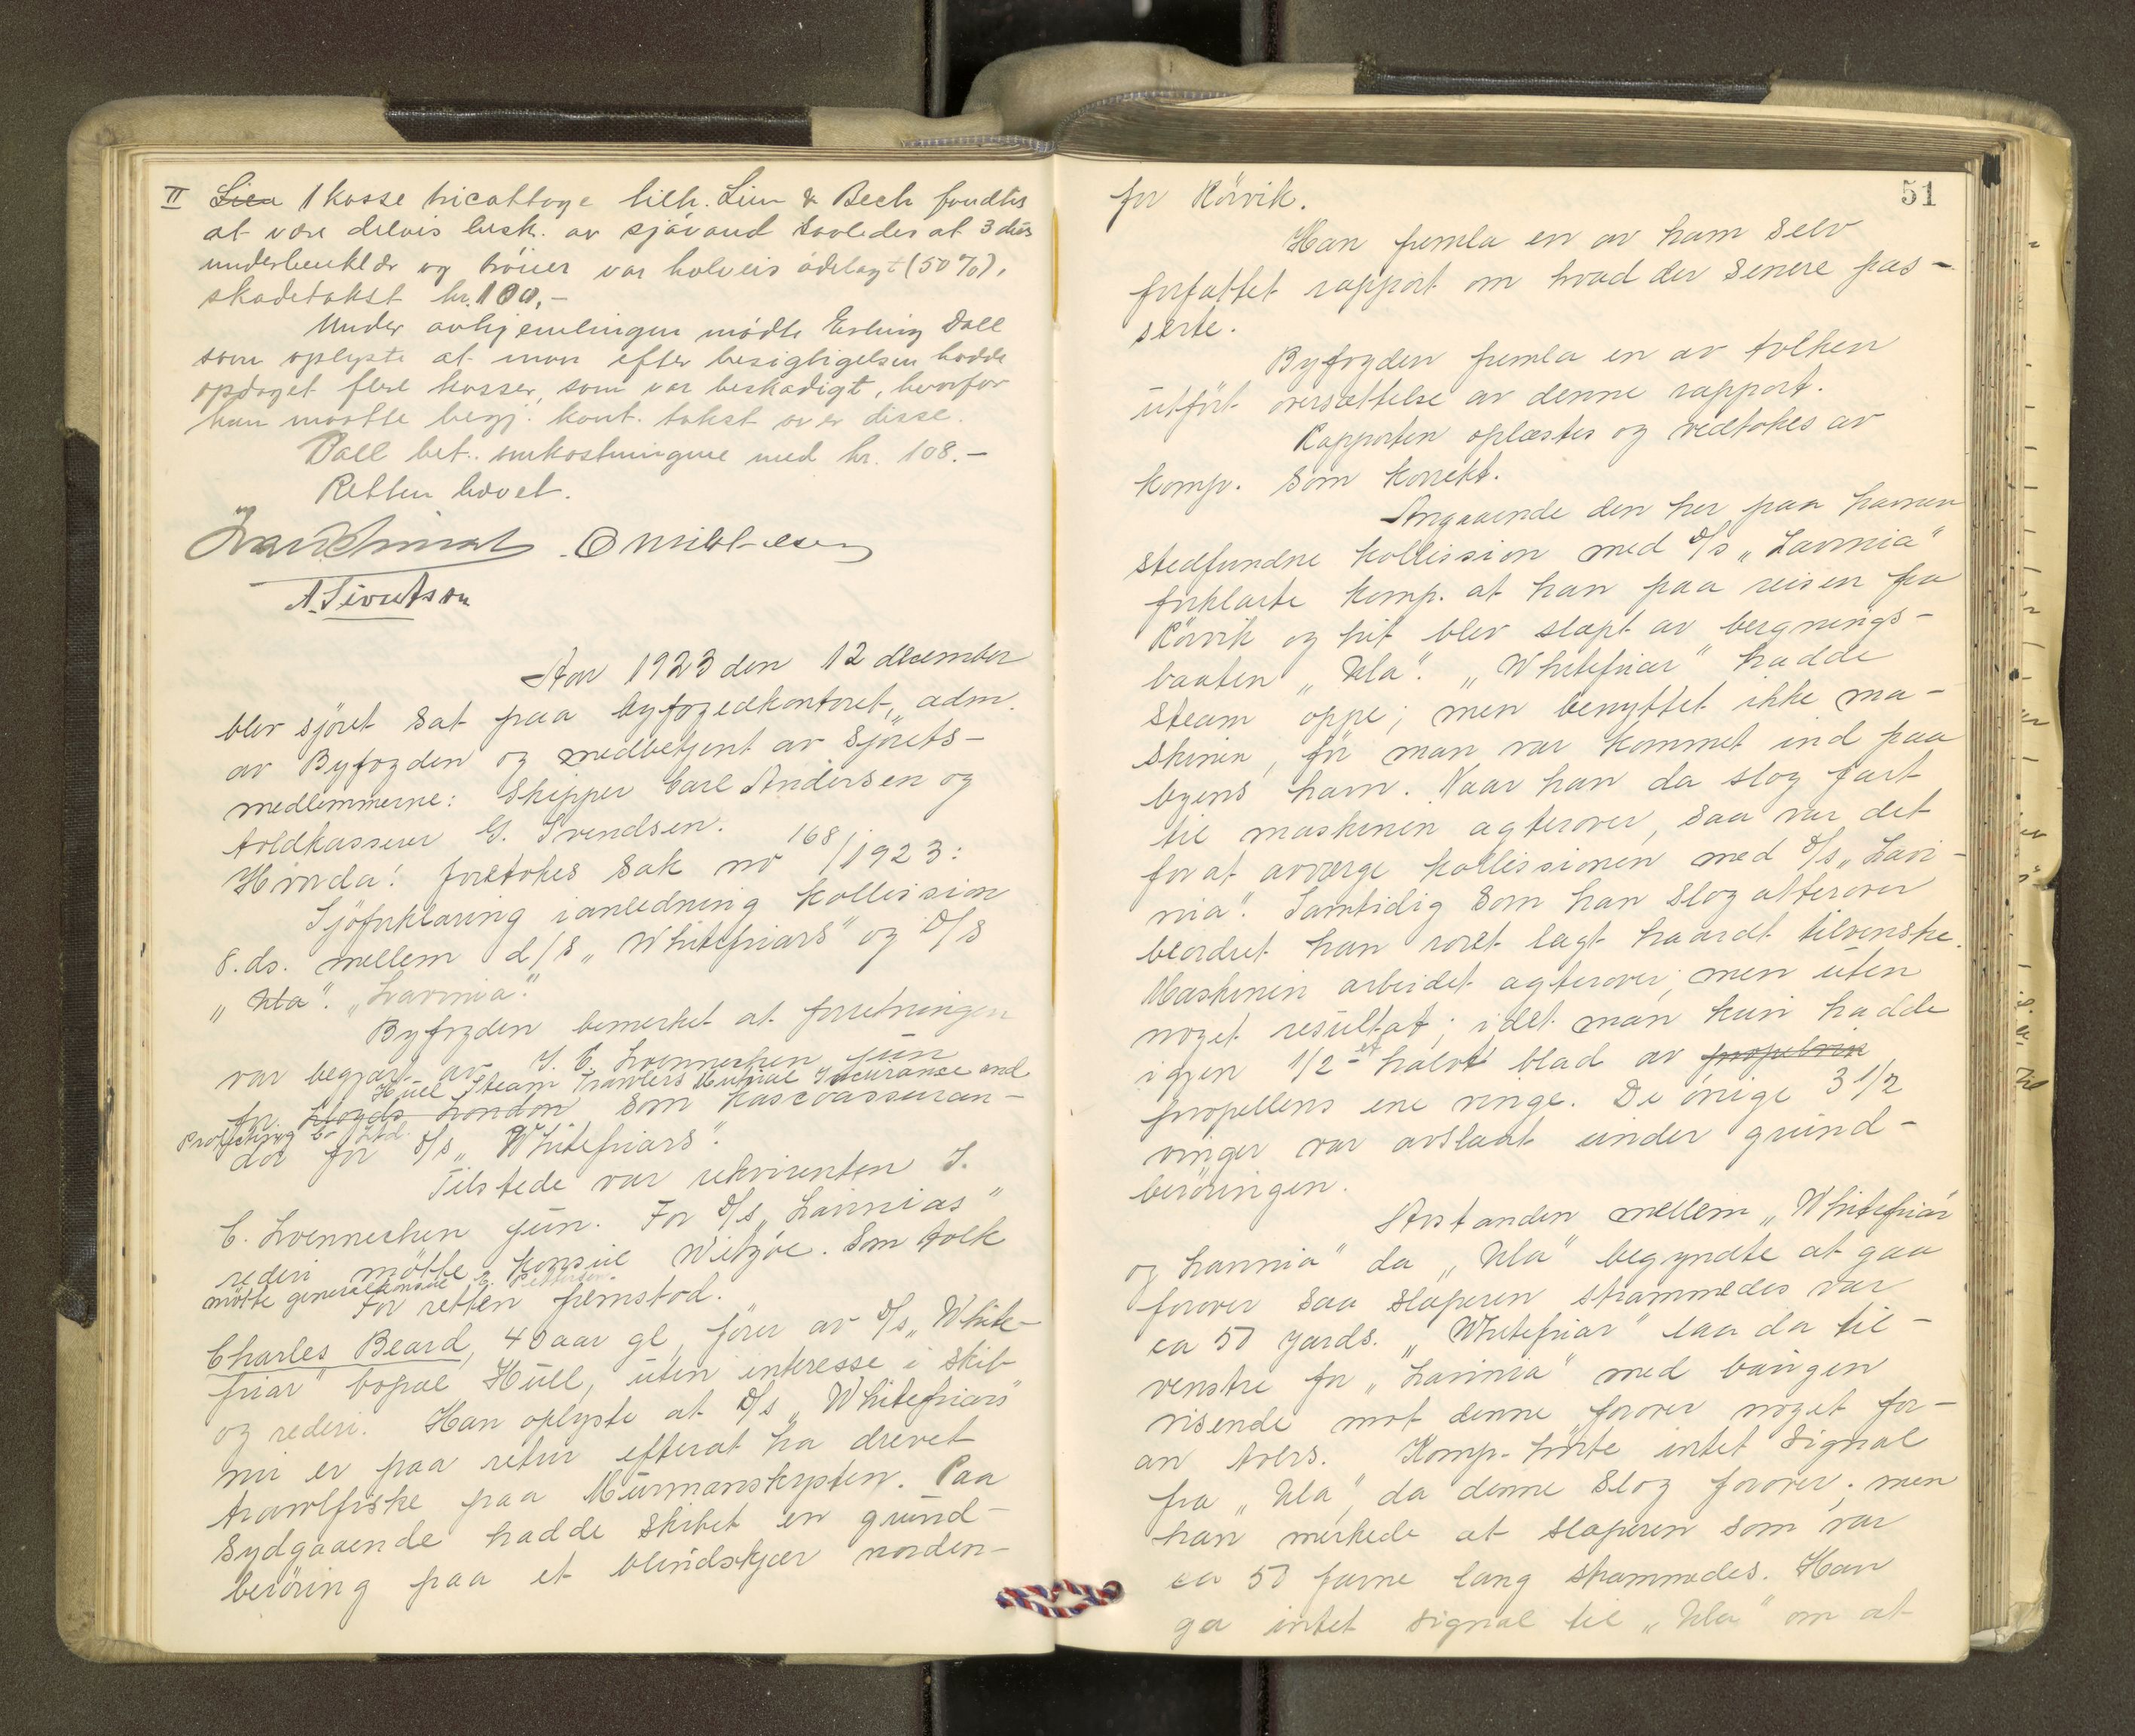 II Lien 1 kasse tricottage tilh. Lien & Bech fandtes
at være delvis besk. av sjøvand saaledes at 3 dus
underbenklær og trøier var halveis ødelagt (50%),
skadetakst kr. 100,-
Under avhjemlingen mødte Erling Dall
som oplyste at man efter besigtigelsen hadde
opdaget flere kasser, som var beskadigt, hvorfor
han maatte begj. kont. takst over disse.
Dall bet. omkostningene med kr. 108.-
Retten hævet.
Aar 1923 den 12 december
blev sjöret sat paa byfogedkontoret, adm.
av Byfogden og medbetjent av sjörets-
medlemmerne: Skipper Carl Andersen og
toldkasserer G. Svendsen.
Hvorda! foretokes Sak no 168/1923:
Sjöforklaring i anledning kollission
8. ds. mellem d/s „Whitefriars" og D/S
„Ula". „Lavinia".
Byfogden bemerket at forretningen
var begjært av J. C. Lvennechen jun
Hull Steam Trawlers Mutual Insurance and
for Lloyds London som kascoassuran-
Protecting Co Ltd.
dör for D/s „Whitefriars".
Tilstede var rekvirenten J.
C. Lvennechen jun. For D/s „Lavinias"
rederi mötte konsul Witzöe. Som tolk
mötte generalkonsul C. Pettersen.
For retten fremstod.
Charles Beard, 40 aar gl, förer av D/s „White-
friar" bopæl Hull, uten interesse i skib
og rederi. Han oplyste at D/s „Whitefriars"
nu er paa retur efterat ha drevet
trawlfiske paa Murmanskysten. Paa
Sydgaaende hadde skibet en grund-
beröring paa et blindskjær norden-
51
for Rörvik.
Han fremla en av ham selv
forfattet rapport om hvad der senere pas-
serte.
Byfogden fremla en av tolken
utfört oversættelse av denne rapport.
Rapporten oplæstes og vedtokes av
komp. som korrekt.
Angaaende den her paa havnen
stedfundne kollission med D/s „Lavinia"
forklarte komp. at han paa reisen fra
Rörvik og hit blev slæpt av bergnings-
baaten „Ula". „Whitefriar" hadde
steam oppe; men benyttet ikke ma-
skinen, för man var kommet ind paa
byens havn. Naar han da slog fart
til maskinen agterover, saa var det
for at avværge kollissionen med D/s „Lavi-
nia". Samtidig som han slog atterover
beordret han roret lagt haardt tilvenstre.
Maskinen arbeidet agterover, men uten
noget resultat; idet man kun hadde
igjen 1/2 - et halvt blad av propelrin
propellens ene vinge. De övrige 3 1/2
vinger var avslaat under grund-
beröringen.
Avstanden mellem „Whitefriar
og Lavinia" da „Ula" begyndte at gaa
forover saa slæperen strammedes var
ca 50 yards. „Whitefriar" laa da til-
venstre for „Lavinia" med baugen
visende mot denne forover noget for-
an tvers. Komp. hörte intet signal
fra „Ula", da denne slog forover; men
han merkede at slæperen som var
ca 50 favne lang strammedes. Han
ga intet signal til „Ula" om at